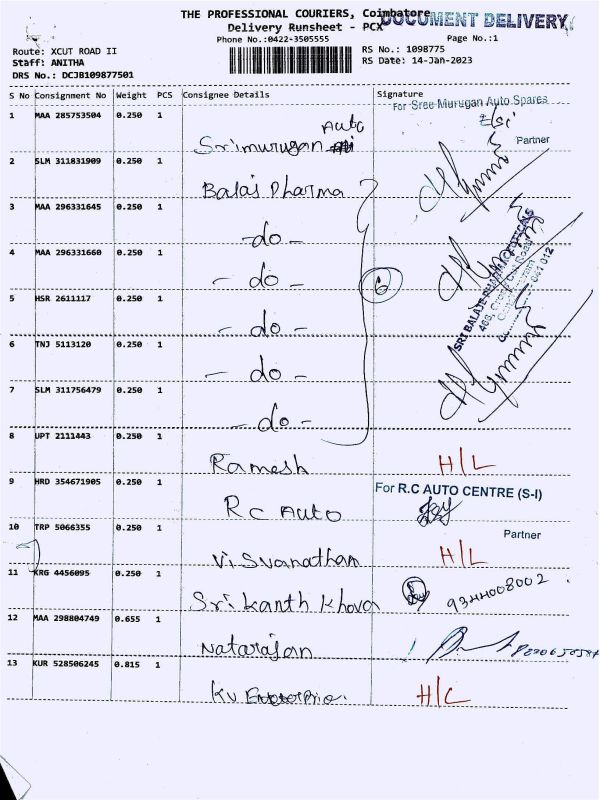 THE PROFESSIONAL COURIERS, Coimbatore
DOCUMENT DELIVERY
Delivery Runsheet - PCX
Phone No.:0422-3505555
Page No.:1
Route: XCUT ROAD II
RS No.: 1098775
Staff: ANITHA
RS Date: 14-Jan-2023
DRS No.: DCJB109877501
S No Consignment No Weight PCS Consignee Details Signature
1 MAA 285753504 0.250 1 Srimurugan Auto
For Sree Murugan Auto Spares
Partner
2 SLM 311831909 0.250 1 Balaji Pharma
3 MAA 296331645 0.250 1 -do-
4 MAA 296331660 0.250 1 -do-
6
SRI BALAJE PHARMACEUTICALS
5 HSR 2611117 0.250 1 -do-
6 TNJ 5113120 0.250 1 -do-
7 SLM 311756479 0.250 1 -do-
8 UPT 2111443 0.250 1 Ramesh H/L
9 HRD 354671905 0.250 1 RC Auto
For R.C AUTO CENTRE (S-I)
Partner
10 TRP 5066355 0.250 1 Visvanathan H/L
11 KRG 4456095 0.250 1 Srikanth Khova 9344008002
12 MAA 298804749 0.655 1 Natarajan
13 KUR 528506245 0.815 1 KV Enterprie. H/C